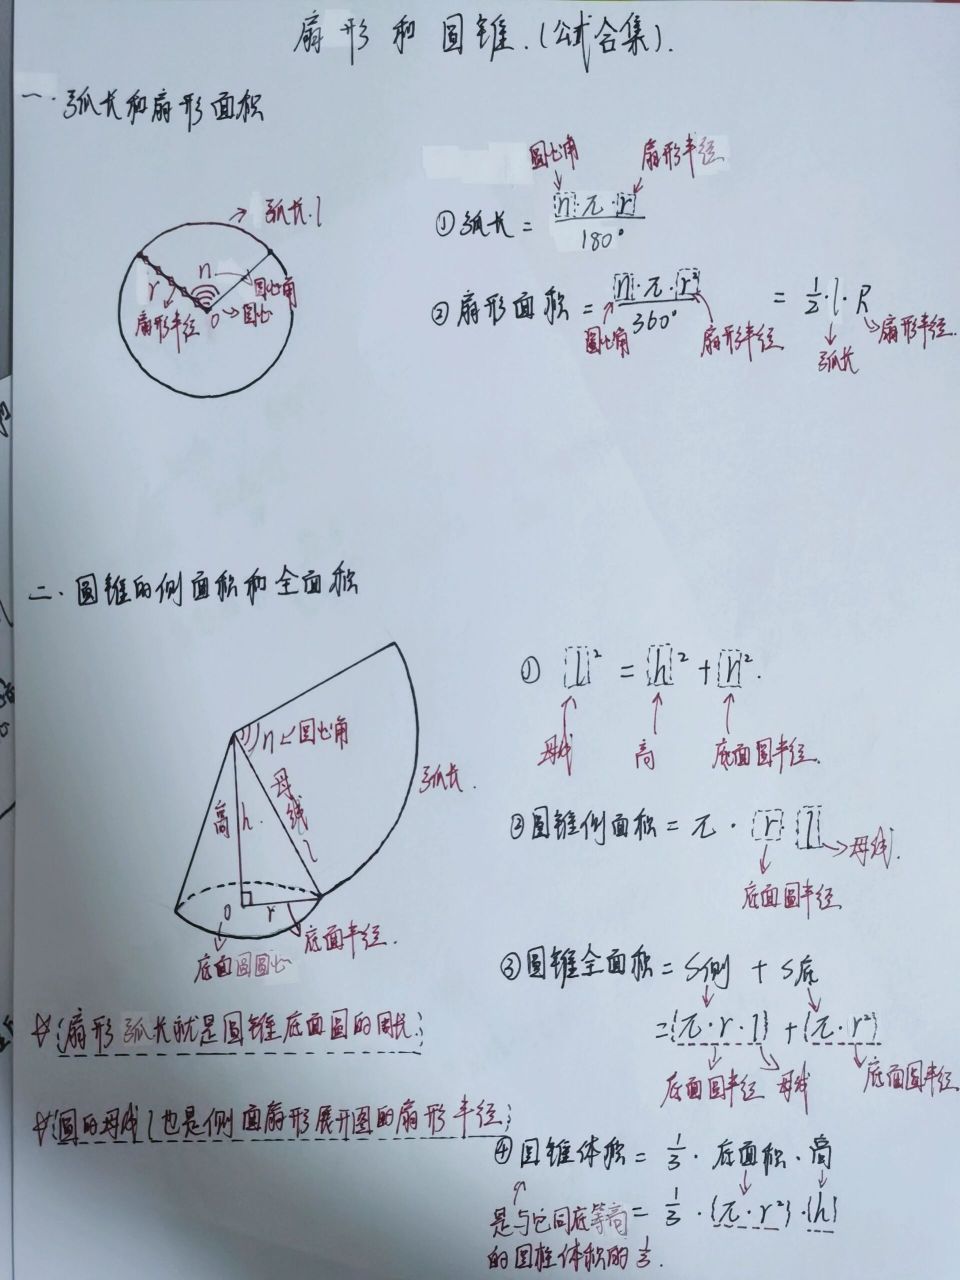 扇形和圆锥.(公式合集).
一.弧长和扇形面积
圆心角
扇形半径
弧长.l
①弧长=n·π·r/180°
n
r
圆心角
扇形半径
O→圆心
②扇形面积=n·π·r²/360°=1/2·l·R
圆心角
扇形半径
弧长
扇形半径.
二.圆锥的侧面积和全面积
①l²=h²+r².
母线
高
底面圆半径.
n←圆心角
弧长.
高
h.
母线l
②圆锥侧面积=π·r l
母线.
底面圆半径
O
r
底面半径.
底面圆圆心
③圆锥全面积=S侧+S底
=(π·r·l)+(π·r²)
底面圆半径
母线
底面圆半径
☆(扇形弧长就是圆锥底面圆的周长.)
☆(圆的母线l也是侧面扇形展开图的扇形半径)
④圆锥体积=1/3·底面积·高
=1/3·(π·r²)·(h)
是与它同底等高
的圆柱体积的1/3.